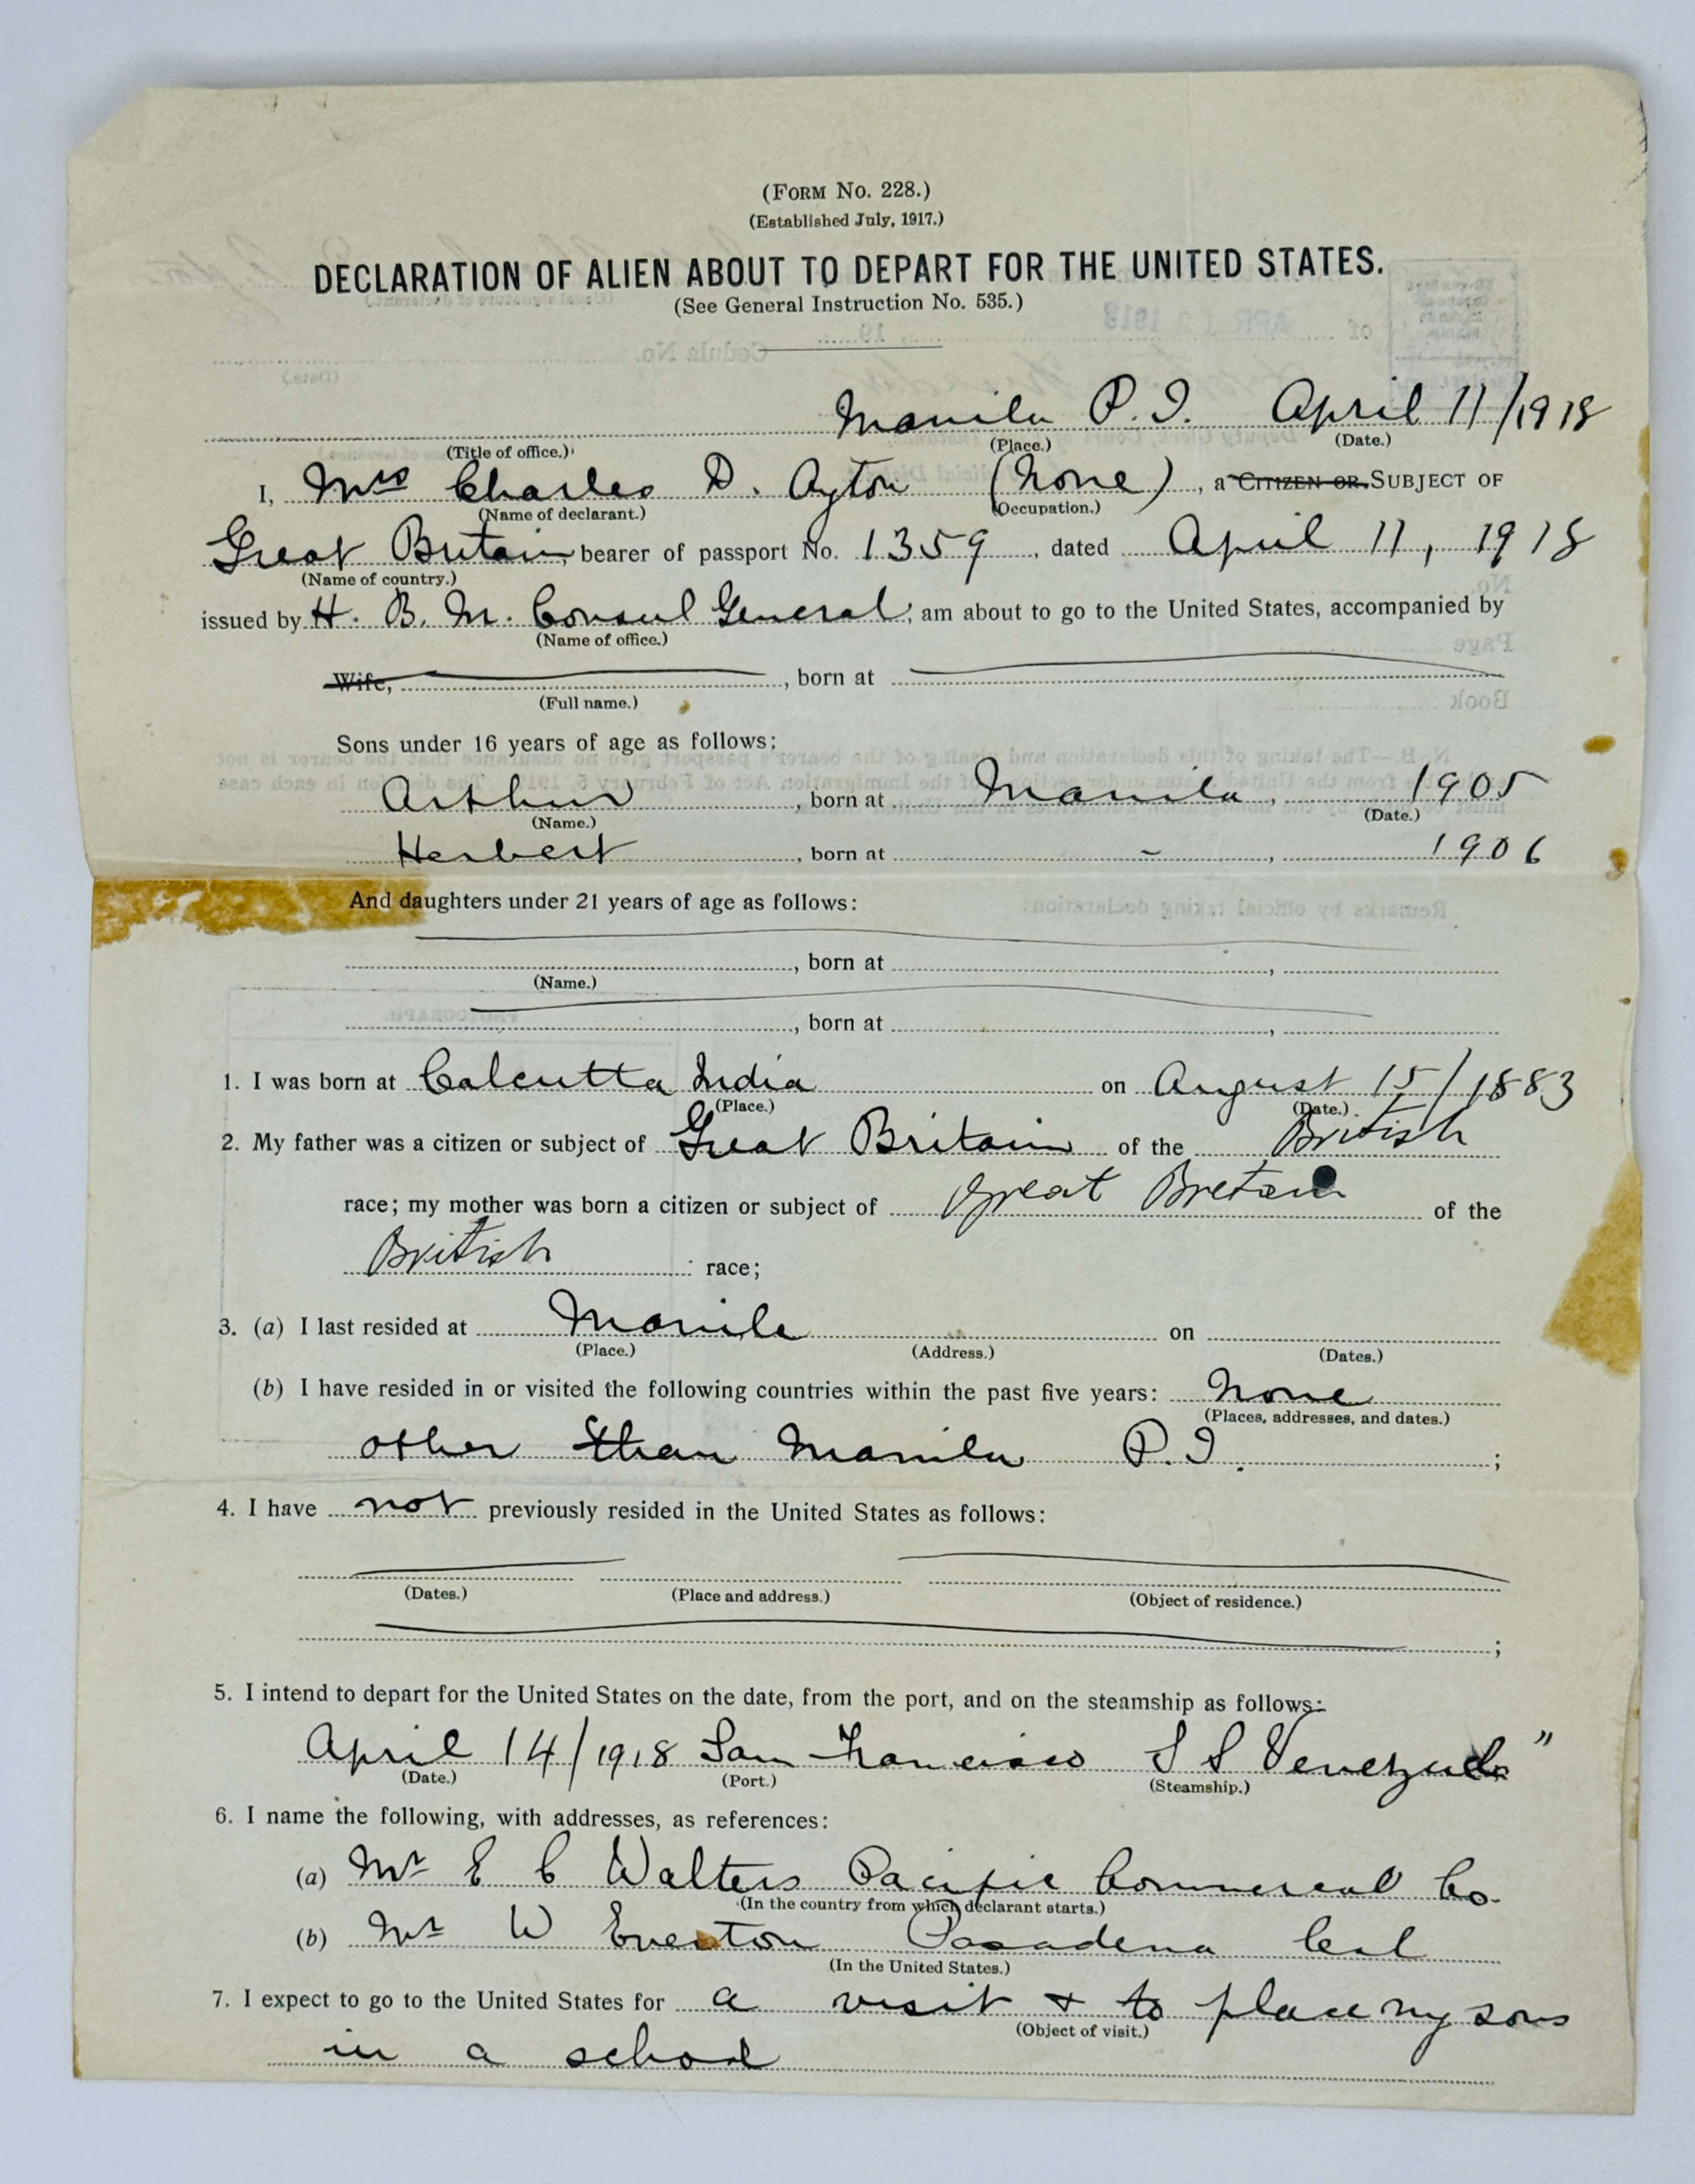 (FORM No. 228.)
(Established July, 1917.)
DECLARATION OF ALIEN ABOUT TO DEPART FOR THE UNITED STATES.
(See General Instruction No. 535.)
Manila P.I. April 11/1918
(Title of office.) (Place.) (Date.)
I, Mrs Charles D. Ayton (None), a CITIZEN OR SUBJECT OF
(Name of declarant.) (Occupation.)
Great Britain, bearer of passport No. 1359, dated April 11, 1918
(Name of country.)
issued by H. B. M. Consul General, am about to go to the United States, accompanied by
(Name of office.)
Wife, , born at
(Full name.)
Sons under 16 years of age as follows:
Arthur, born at Manila, 1905
(Name.) (Date.)
Herbert, born at -, 1906
And daughters under 21 years of age as follows:
, born at ,
(Name.)
, born at ,
1. I was born at Calcutta India on August 15/1883
(Place.) (Date.)
2. My father was a citizen or subject of Great Britain of the British
race; my mother was born a citizen or subject of Great Bretain of the
British race;
3. (a) I last resided at Manila on
(Place.) (Address.) (Dates.)
(b) I have resided in or visited the following countries within the past five years: None
(Places, addresses, and dates.)
other than Manila P.I. ;
4. I have not previously resided in the United States as follows:
(Dates.) (Place and address.) (Object of residence.)
;
5. I intend to depart for the United States on the date, from the port, and on the steamship as follows:
April 14/1918 San Francisco S S Venezuela"
(Date.) (Port.) (Steamship.)
6. I name the following, with addresses, as references:
(a) Mr E C Walters Pacific Commercial Co.
(In the country from which declarant starts.)
(b) Mr W Everton Pasadena Cal
(In the United States.)
7. I expect to go to the United States for a visit & to place my sons
(Object of visit.)
in a school